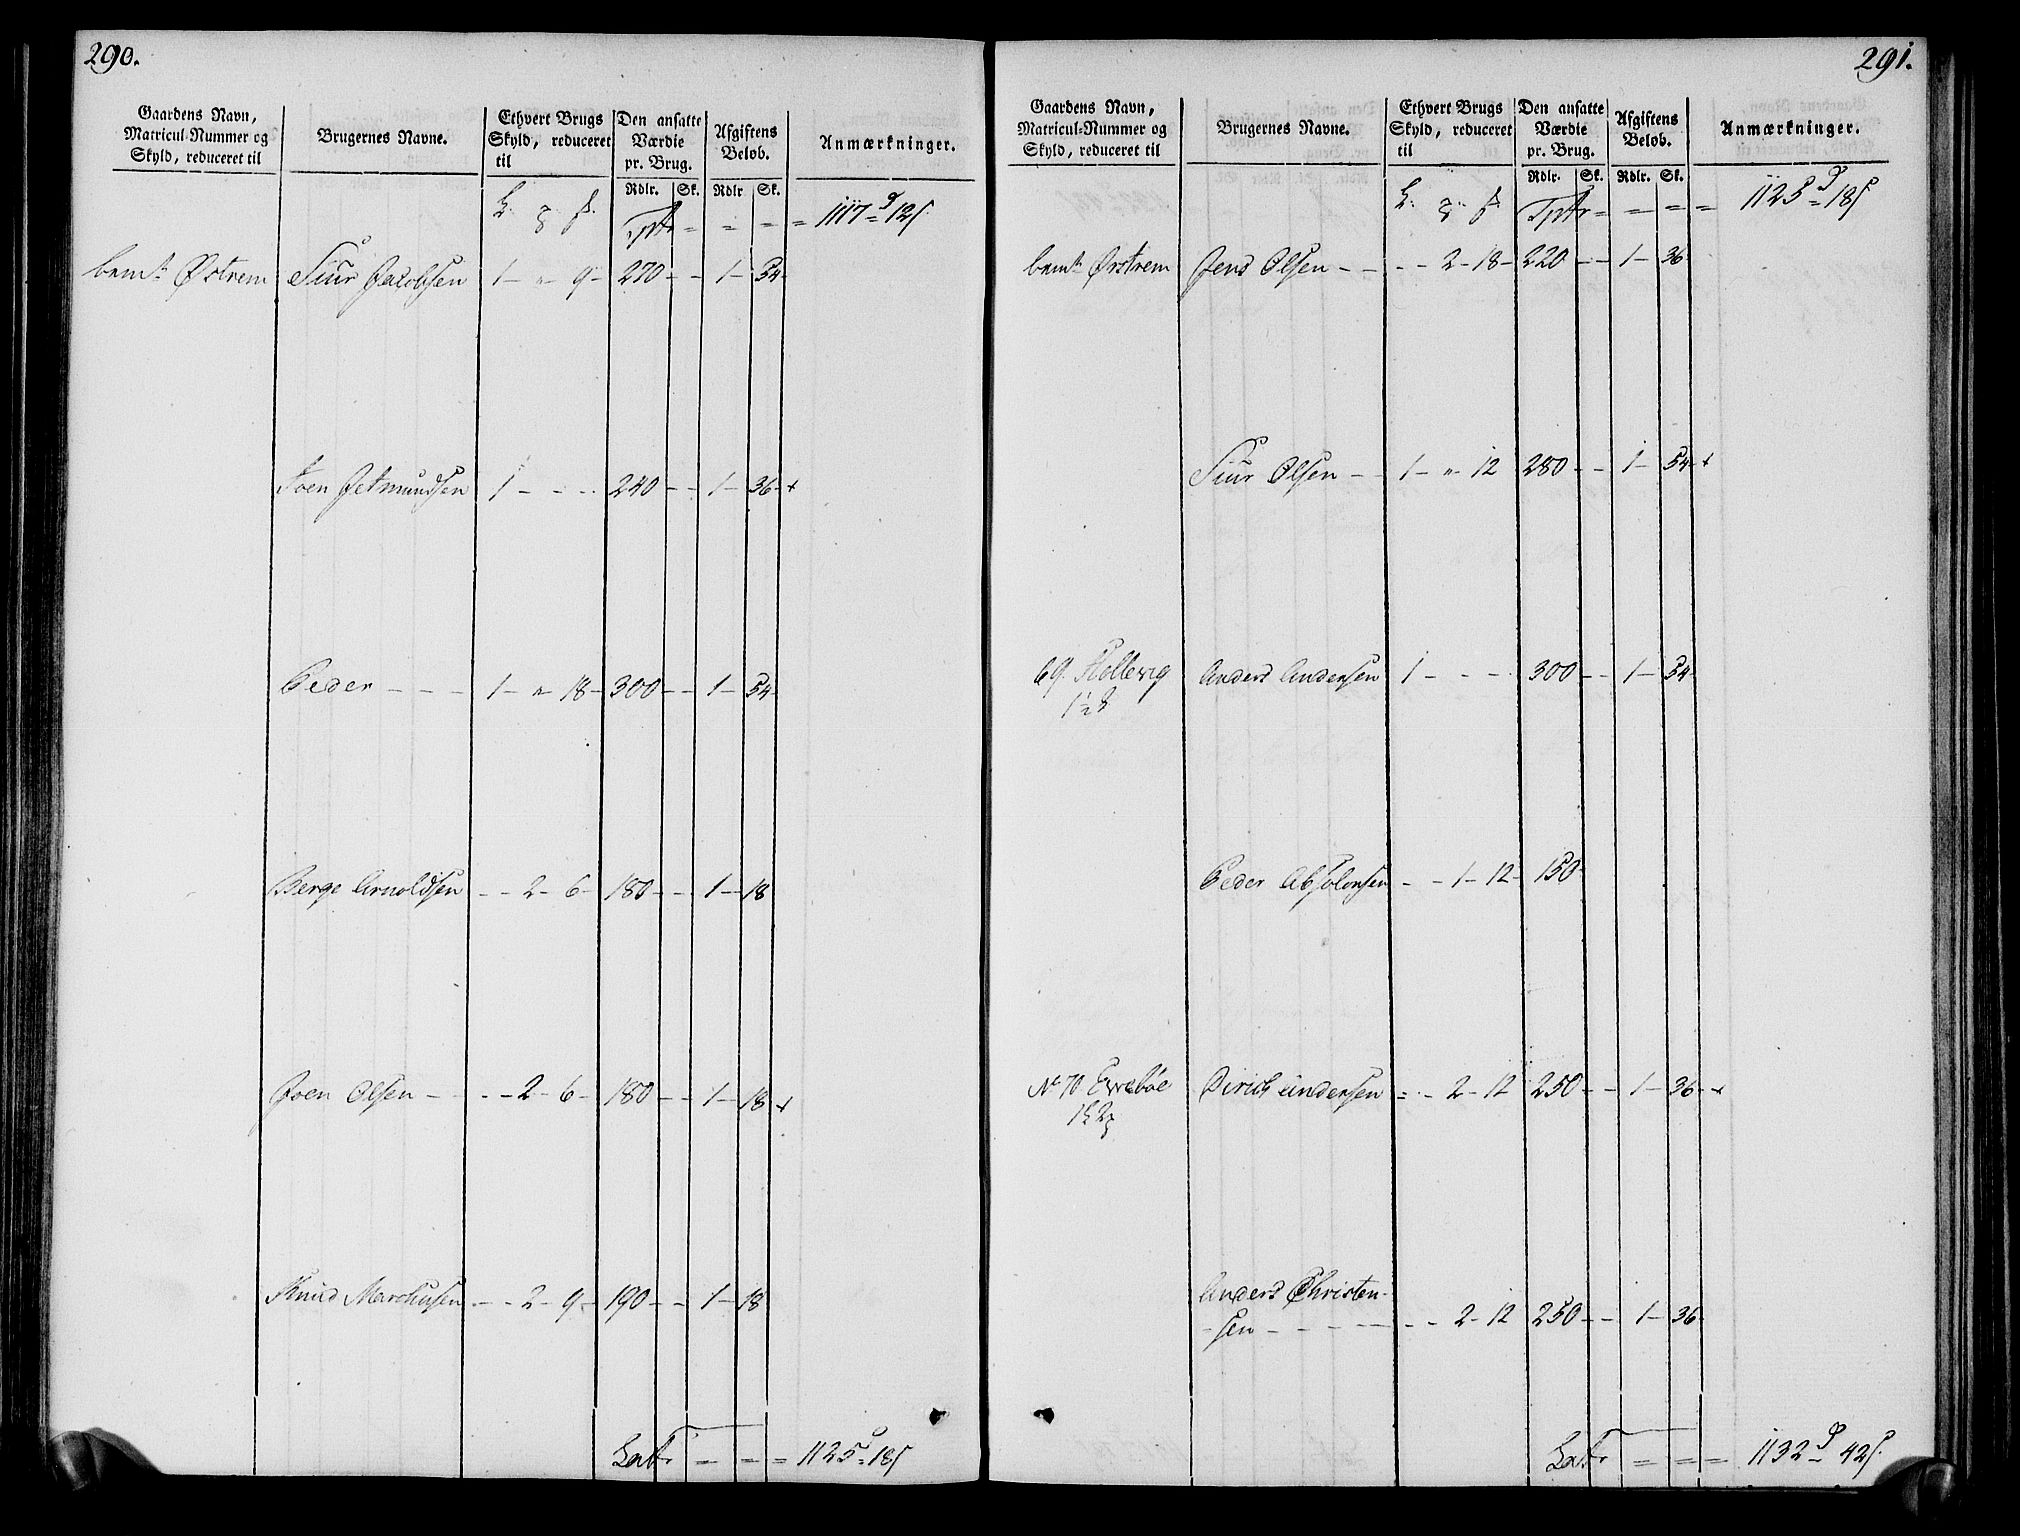 290.
Gaardens Navn,
Matricul-Nummer og
Skyld, reduceret til
Brugernes Navne.
Ethvert Brugs
Skyld, reduceret
til
Den ansatte
Værdie
pr. Brug.
Rdlr. Sk.
Afgiftens
Beløb.
Rdlr Sk.
Anmærkninger.
Tpt = = = = 1117 = 12
Østrem Siur Jacobsen 1 - " 9 - 270 - - 1 - 54
Joen Jetmundsen 1 - - - 240 - - 1 - 36 - +
Peder - - - 1 - " 18 - 300 - - 1 - 54
Berge Arnoldsen - - 2 - 6 - 180 - - 1 - 18
Joen Olsen - - - 2 - 6 - 180 - - 1 - 18 +
Knud Marchusen - - 2 - 9 - 190 - - 1 - 18
Lat = = = 1125 = 18
291.
Gaardens Navn,
Matricul-Nummer og
Skyld, reduceret til
Brugernes Navne.
Ethvert Brugs
Skyld, reduceret
til
Den ansatte
Værdie
pr. Brug.
Rdlr. Sk.
Afgiftens
Beløb.
Rdlr. Sk.
Anmærkninger.
Tpt = = = = 1125 = 18
Ørstrem Jens Olsen - - - - 2 - 18 - 220 - - 1 - 36
Siur Olsen - - 1 - " 12 280 - - 1 - 54 +
69. Hollevig Anders Andersen 1 - - - 300 - - 1 - 54
1½
Peder Absolonsen - - 1 - 12 - 150 -
No 70 Ervebøe Dirich Andersen = - 2 - 12 250 - - 1 - 36 - +
Anders Christen-
sen - - - - - - 2 - 12 250 - - 1 - 36
Lat = = = 1132 = 42